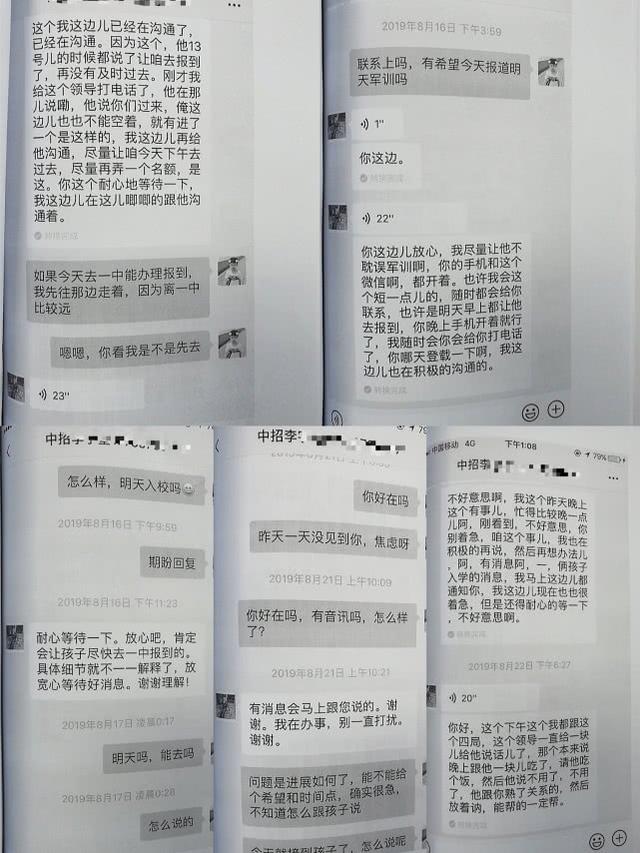 这个我这边儿已经在沟通了，
已经在沟通。因为这个，他13
号儿的时候都说了让咱去报到
了，再没有及时过去。刚才我
给这个领导打电话了，他在那
儿说嘞，他说你们过来，俺这
边儿也也不能空着，就有进了
一个是这样的，我这边儿再给
他沟通，尽量让咱今天下午去
过去，尽量再弄一个名额，是
这。你这个耐心地等待一下，
我这边儿在这儿唧唧的跟他沟
通着。
转换完成
如果今天去一中能办理报到，
我先往那边走着，因为离一中
比较远
嗯嗯，你看我是不是先去
23"
2019年8月16日 下午3:59
联系上吗，有希望今天报道明
天军训吗
1"
你这边。
转换完成
22"
你这边儿放心，我尽量让他不
耽误军训啊，你的手机和这个
微信啊，都开着。也许我会这
个短一点儿的，随时都会给你
联系，也许是明天早上都让他
去报到，你晚上手机开着就行
了，我随时会你会给你打电话
了，你哪天登载一下啊，我这
边儿也在积极的沟通的。
转换完成
中招李
怎么样，明天入校吗
2019年8月16日 下午9:59
期盼回复
2019年8月16日 下午11:23
耐心等待一下。放心吧，肯定
会让孩子尽快去一中报到的。
具体细节就不一一解释了，放
宽心等待好消息。谢谢理解！
2019年8月17日 凌晨0:17
明天吗，能去吗
2019年8月17日 凌晨0:28
怎么说的
中招李
你好在吗
昨天一天没见到你，焦虑呀
2019年8月21日 上午10:09
你好在吗，有音讯吗，怎么样
了？
2019年8月21日 上午10:21
有消息会马上跟您说的。谢
谢。我在办事，别一直打扰。
谢谢。
问题是进展如何了，能不能给
个希望和时间点，确实很急，
不知道怎么跟孩子说
今天就接到孩子了，怎么说呢
中国移动 4G 下午1:08 79%
中招李
不好意思啊，我这个昨天晚上
这个有事儿，忙得比较晚一点
儿阿，刚看到，不好意思，你
别着急，咱这个事儿，我也在
积极的再说，然后再想办法儿
，阿，有消息阿，一，俩孩子
入学的消息，我马上这边儿都
通知你，我这边儿现在也也很
着急，但是还得耐心的等一下
，不好意思啊。
转换完成
2019年8月22日 下午6:27
20"
你好，这个下午这个我都跟这
个四局，这个领导一直给一块
儿给他说话儿了，那个本来说
晚上跟他一块儿吃了，请他吃
个饭，然后他说不用了，不用
了，他跟你熟了关系的，然后
放着讷，能帮的一定帮。
转换完成